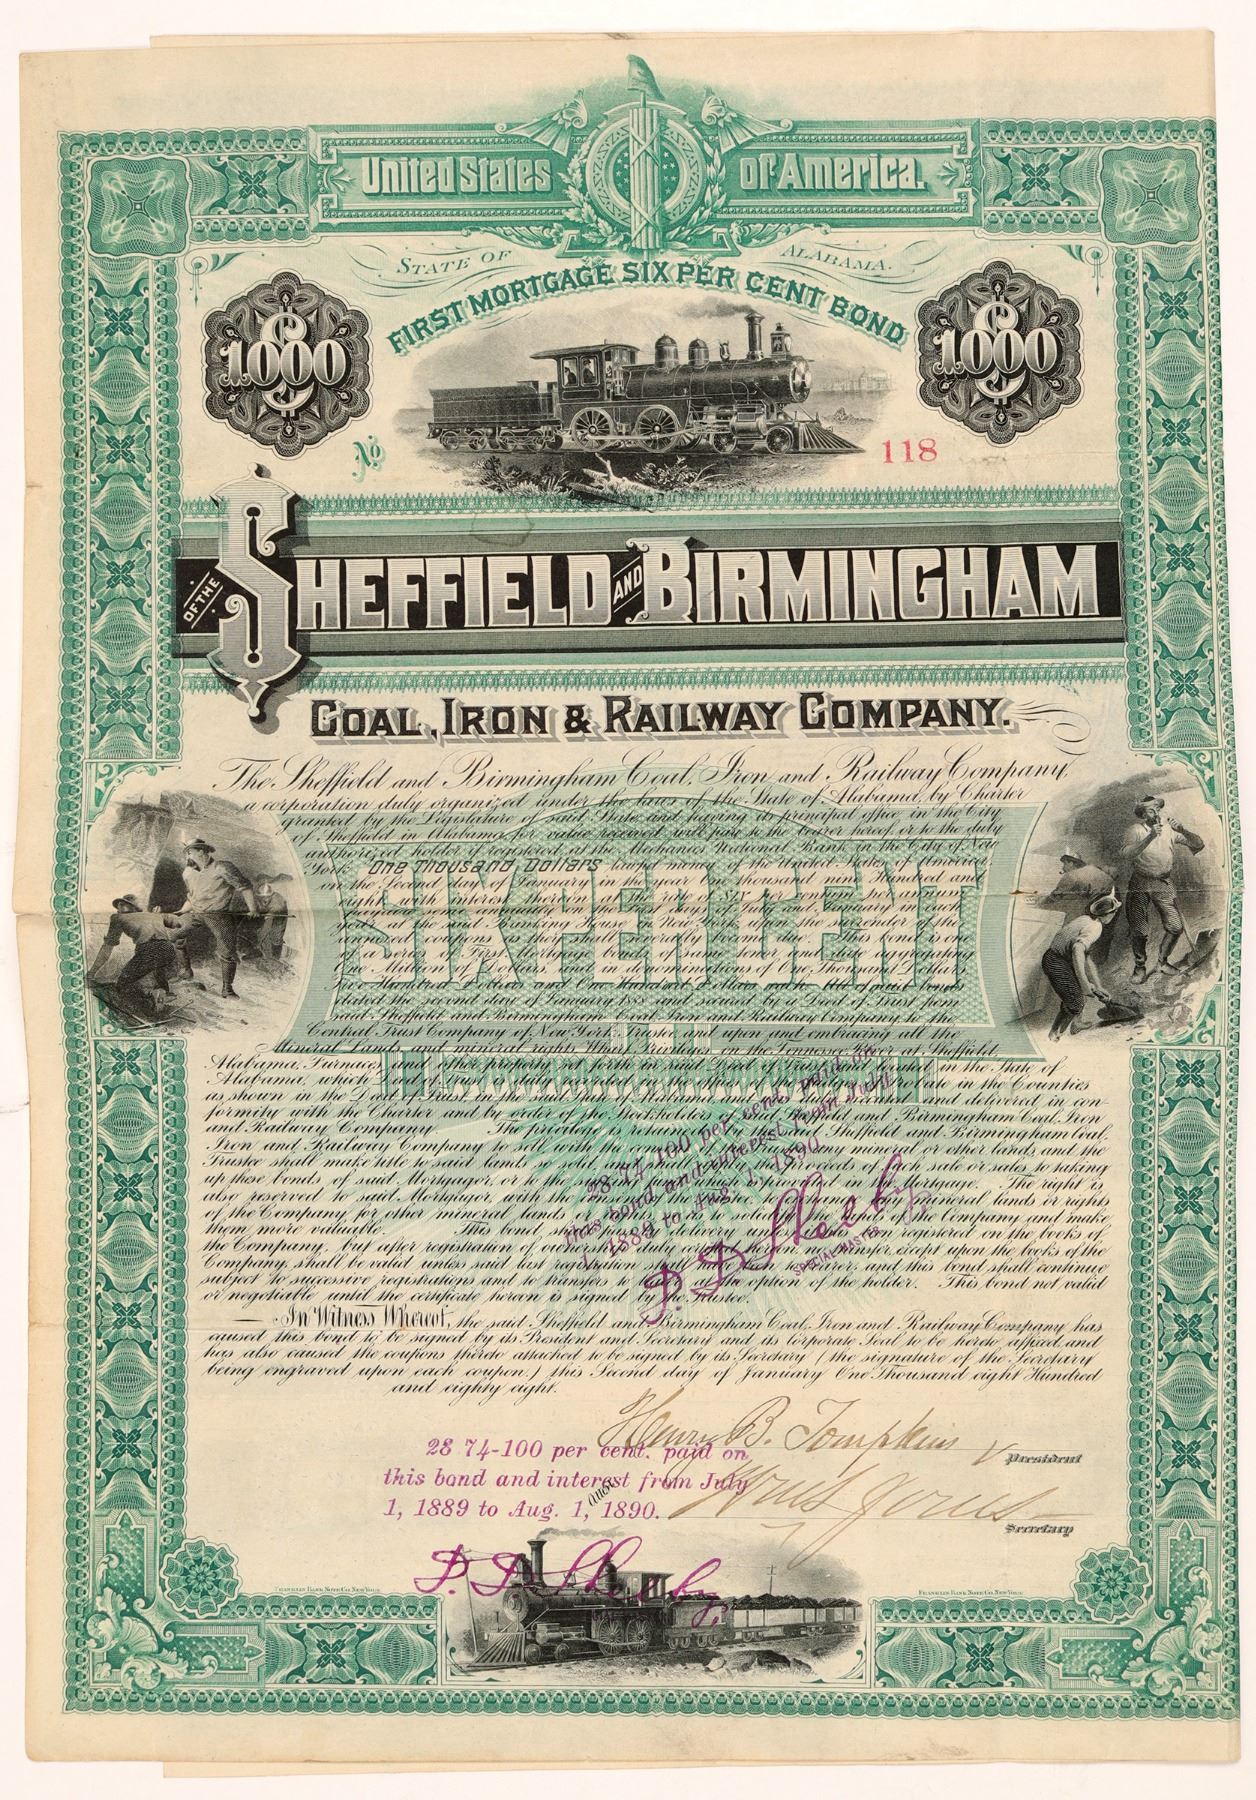 United States of America.
STATE OF ALABAMA.
FIRST MORTGAGE SIX PER CENT BOND
$1000 $1000
No 118
OF THE SHEFFIELD AND BIRMINGHAM
COAL, IRON & RAILWAY COMPANY.
The Sheffield and Birmingham Coal, Iron and Railway Company,
a corporation duly organized under the laws of the State of Alabama, by Charter
granted by the Legislature of said State and having its principal office in the City
of Sheffield in Alabama, for value received will pay to the bearer hereof or to the duly
authorized holder if registered, at the Mechanics National Bank in the City of New
York One Thousand Dollars lawful money of the United States of America,
on the Second day of January in the year One thousand nine Hundred and
eight, with interest thereon at the rate of Six per centum per annum
payable semi annually on the first days of July and January in each
year, at the said Banking House in New York, upon the surrender of the
annexed coupons as they shall severally become due. This bond is one
of a series of First Mortgage bonds of same tenor and date aggregating
One Million of Dollars, and in denominations of One Thousand Dollars
Five Hundred Dollars and One Hundred Dollars each. All of which bonds
dated the second day of January 1888 and secured by a Deed of Trust from
said Sheffield and Birmingham Coal, Iron and Railway Company to the
Central Trust Company of New York, Trustee, and upon and embracing all the
Mineral Lands and mineral rights Wharf Privileges on the Tennessee River at Sheffield,
Alabama, Furnaces and other property set forth in said Deed of Trust and situated in the State of
Alabama, which Deed of Trust is duly recorded in the offices of the Judges of Probate in the Counties
as shown in the Deed of Trust in the said State of Alabama and duly executed and delivered in con-
formity with the Charter and by order of the Stockholders of said Sheffield and Birmingham Coal, Iron
and Railway Company. The privilege is retained by the said Sheffield and Birmingham Coal,
Iron and Railway Company to sell with the consent of the Trustee any mineral or other lands and the
Trustee shall make title to said lands so sold, and shall apply the proceeds of such sale or sales to taking
up these bonds of said Mortgagor, or to the sinking fund which is provided in the Mortgage. The right is
also reserved to said Mortgagor, with the consent of the Trustee, to exchange any mineral lands or rights
of the Company for other mineral lands or rights, so as to solidify the lands of the Company and make
them more valuable. This bond shall pass by delivery unless it has been registered on the books of
the Company, but after registration of ownership duly certified hereon, no transfer except upon the books of the
Company, shall be valid unless said last registration shall have been to bearer, and this bond shall continue
subject to successive registrations and to transfers to bearer at the option of the holder. This bond not valid
or negotiable until the certificate hereon is signed by the Trustee.
In Witness Whereof, the said Sheffield and Birmingham Coal, Iron and Railway Company has
caused this bond to be signed by its President and Secretary and its Corporate Seal to be hereto affixed, and
has also caused the coupons thereto attached to be signed by its Secretary (the signature of the Secretary
being engraved upon each coupon.) this Second day of January One Thousand eight Hundred
and eighty eight.
SIX PER CENT
28 74-100 per cent. paid on
this bond and interest from July
1, 1889 to Aug. 1, 1890.
P. D. Shelby,
SPECIAL MASTER
Henry B. Tompkins
President
28 74-100 per cent. paid on
this bond and interest from July
1, 1889 to Aug. 1, 1890.
Secretary
P. D. Shelby,
FRANKLIN BANK NOTE CO. NEW YORK.
FRANKLIN BANK NOTE CO. NEW YORK.